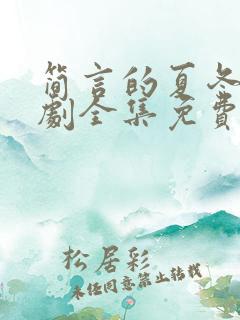 简言的夏冬
劇全集免費
松居彩
未经同意禁止转载